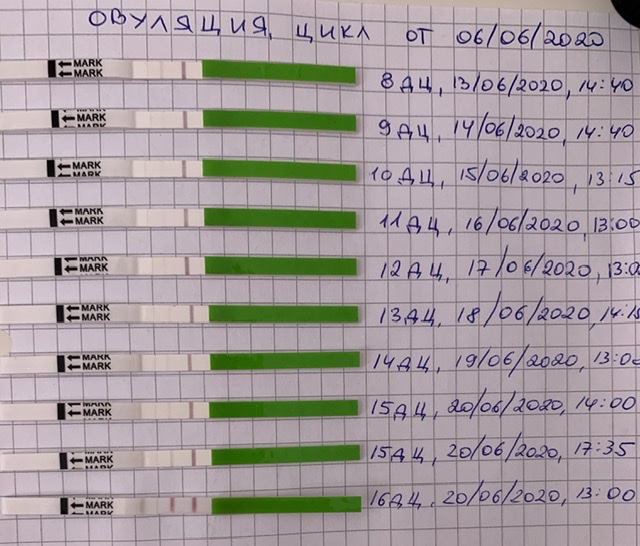 ОВУЛЯЦИЯ, ЦИКЛ ОТ 06/06/2020
MARK
MARK
8 ДЦ, 13/06/2020, 14:40
MARK
MARK
MARK
9 ДЦ, 14/06/2020, 14:40
MARK
MARK
10 ДЦ, 15/06/2020, 13:15
MARK
MARK
11 ДЦ, 16/06/2020, 13:00
MARK
MARK
12 ДЦ, 17/06/2020, 13:00
MARK
MARK
13 ДЦ, 18/06/2020, 14:15
MARK
MARK
14 ДЦ, 19/06/2020, 13:00
MARK
MARK
15 ДЦ, 20/06/2020, 14:00
MARK
MARK
15 ДЦ, 20/06/2020, 17:35
MARK
MARK
16 ДЦ, 20/06/2020, 13:00